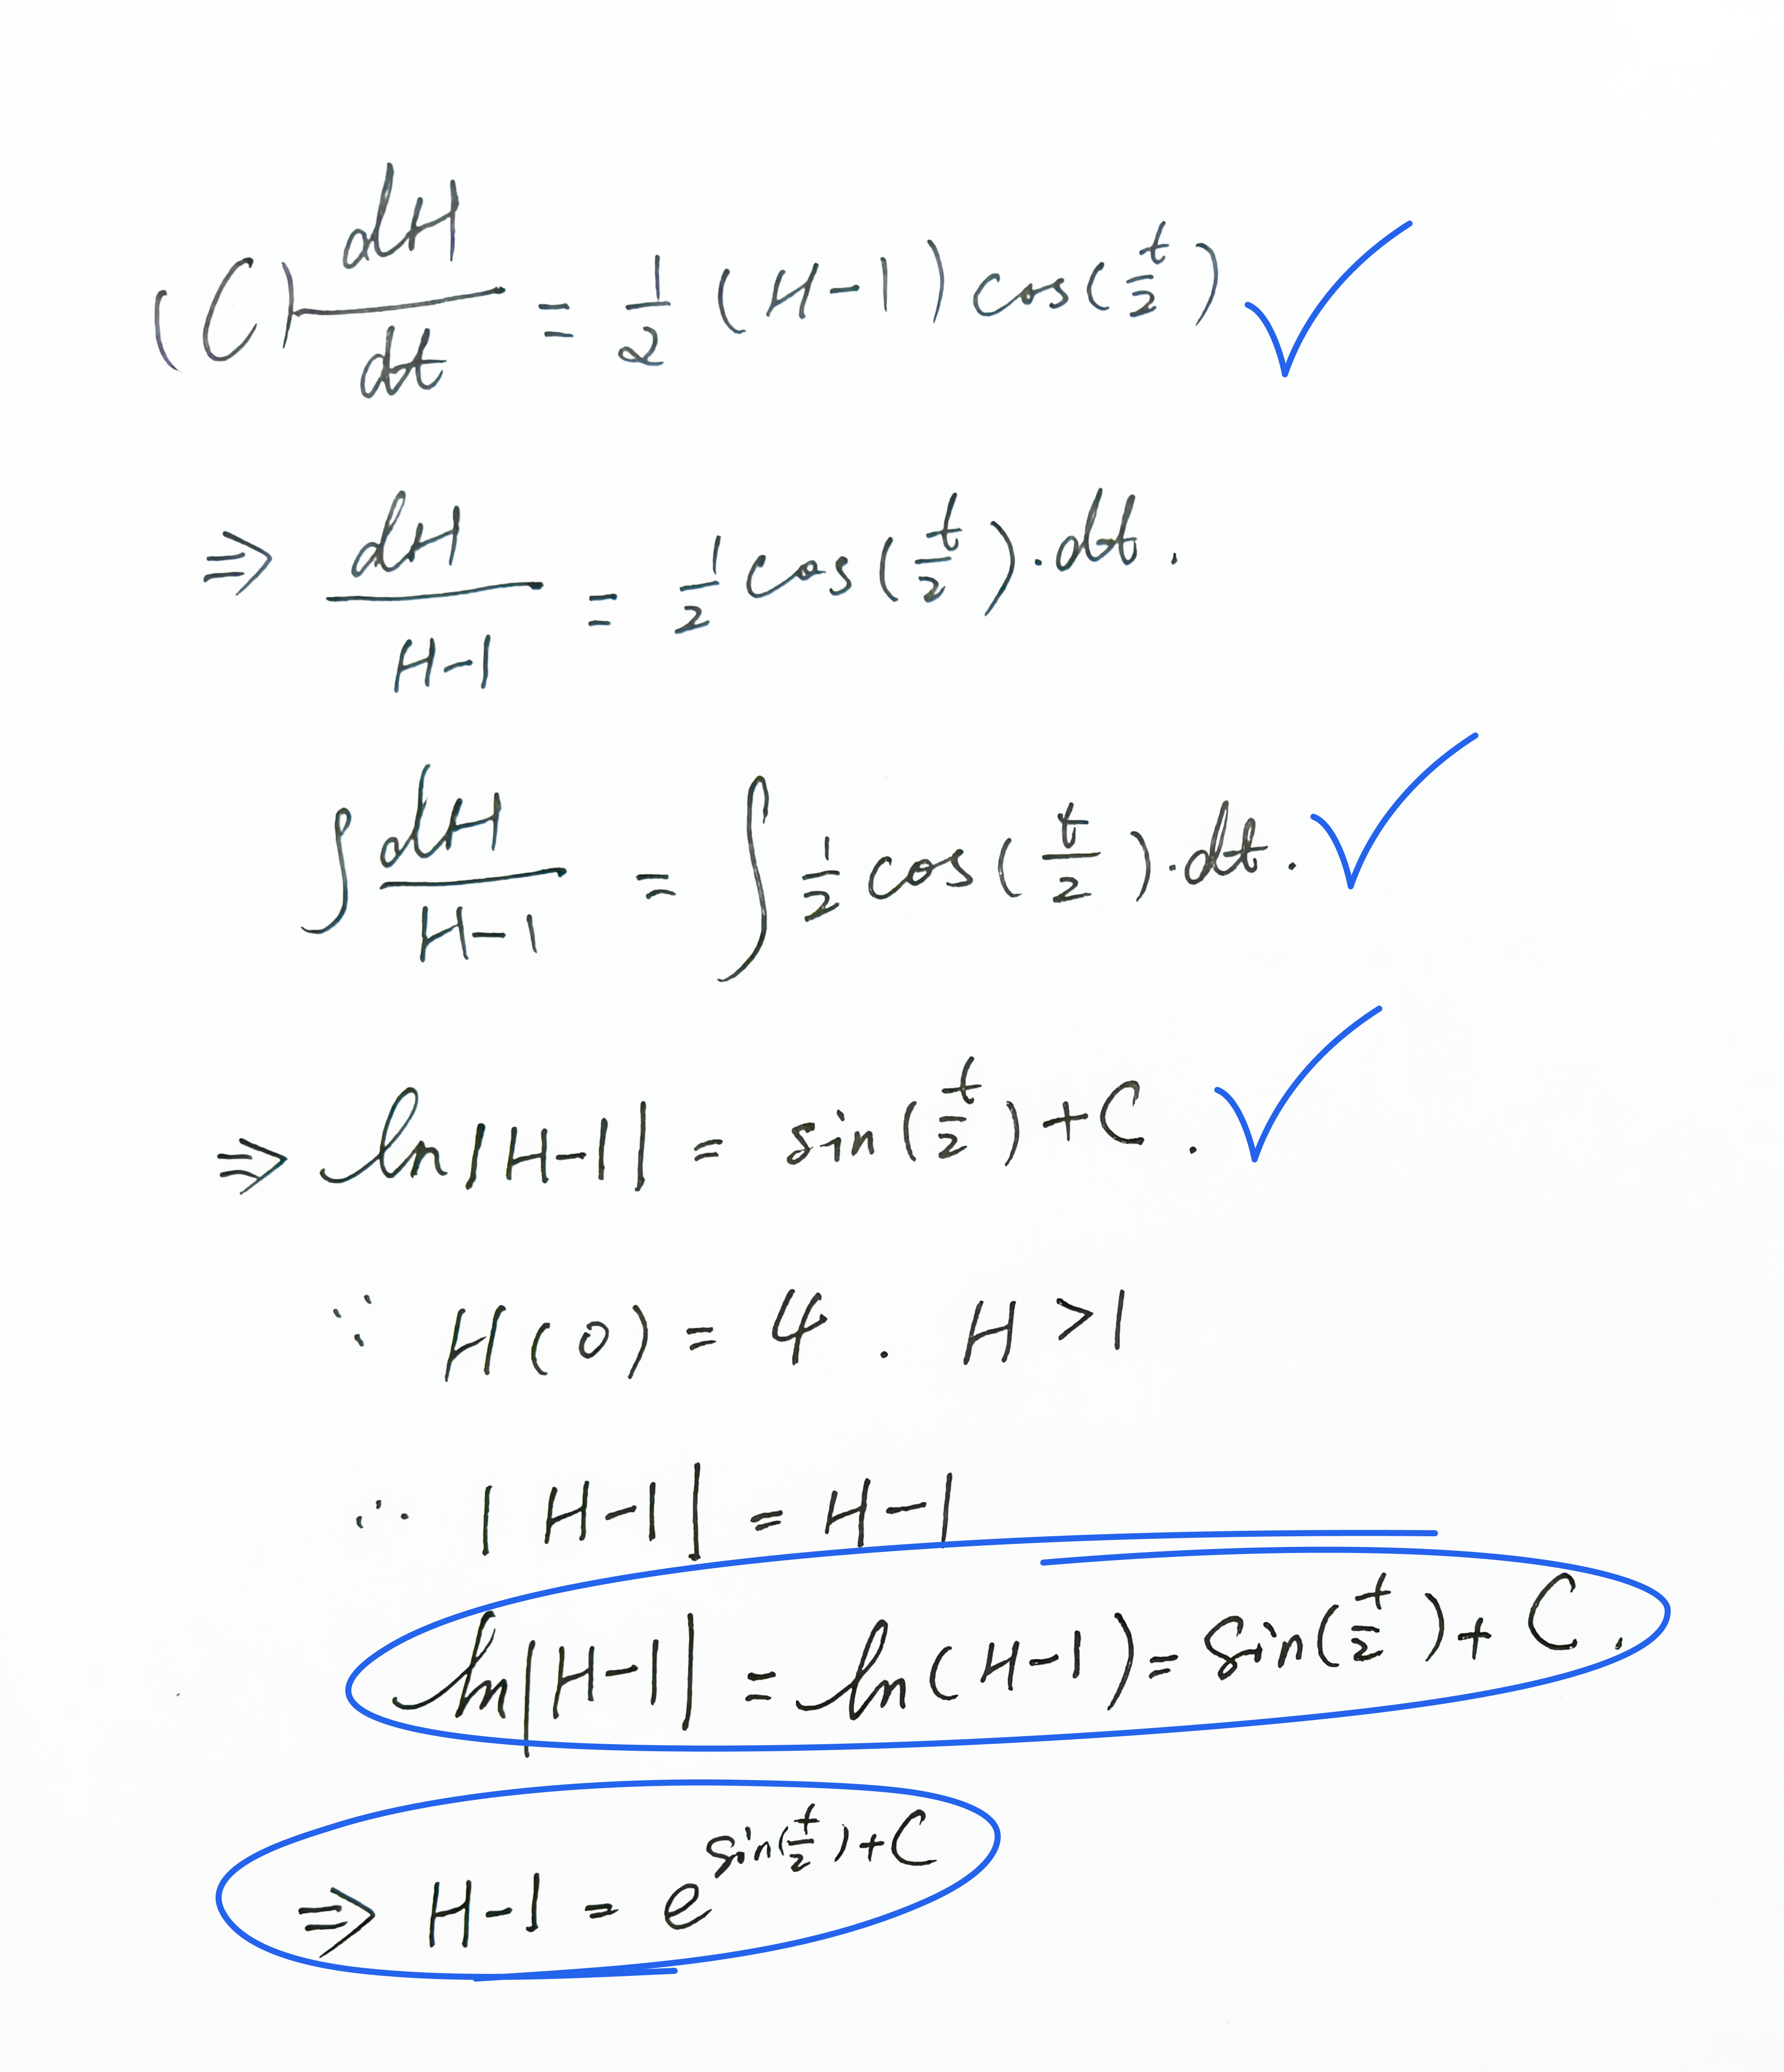 (C) dH/dt = 1/2 (H-1) cos(t/2)
⇒ dH/H-1 = 1/2 cos(t/2)·dt.
∫ dH/H-1 = ∫ 1/2 cos(t/2)·dt.
⇒ ln|H-1| = sin(t/2)+C.
∵ H(0) = 4. H>1
∴ |H-1| = H-1
ln|H-1| = ln(H-1) = sin(t/2)+C.
⇒ H-1 = e^(sin(t/2)+C)